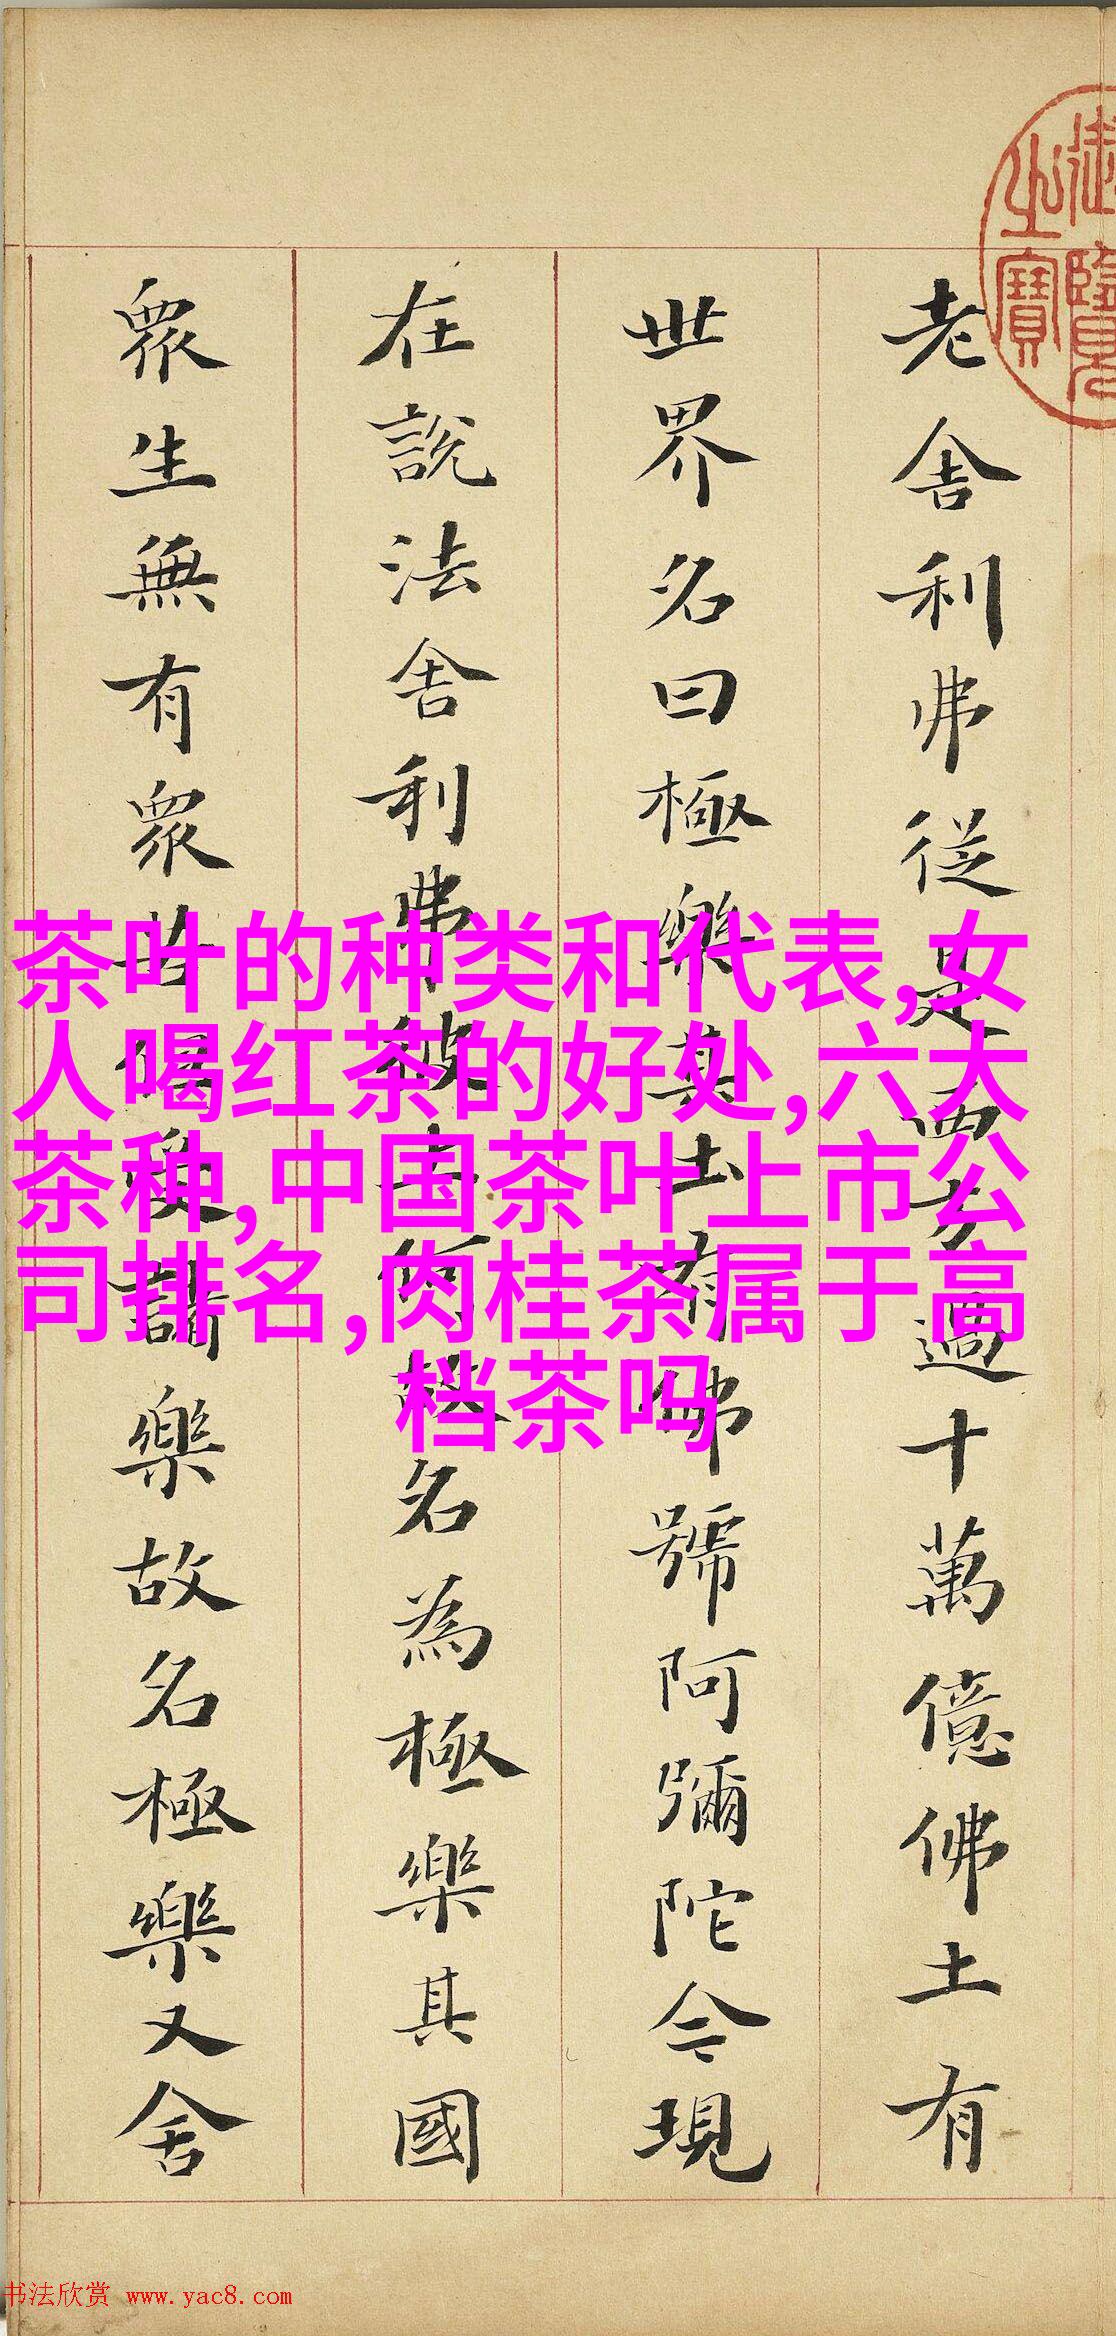 御覽
之寶
老舍利弗從是西方過十萬億佛土有
世界名曰極樂其土有佛號阿彌陀今現
在說法舍利弗彼土何故名為極樂其國
衆生無有衆苦但受諸樂故名極樂又舍
茶叶的种类和代表,女
人喝红茶的好处,六大
茶种,中国茶叶上市公
司排名,肉桂茶属于高
档茶吗
书法欣赏 www.yac8.com